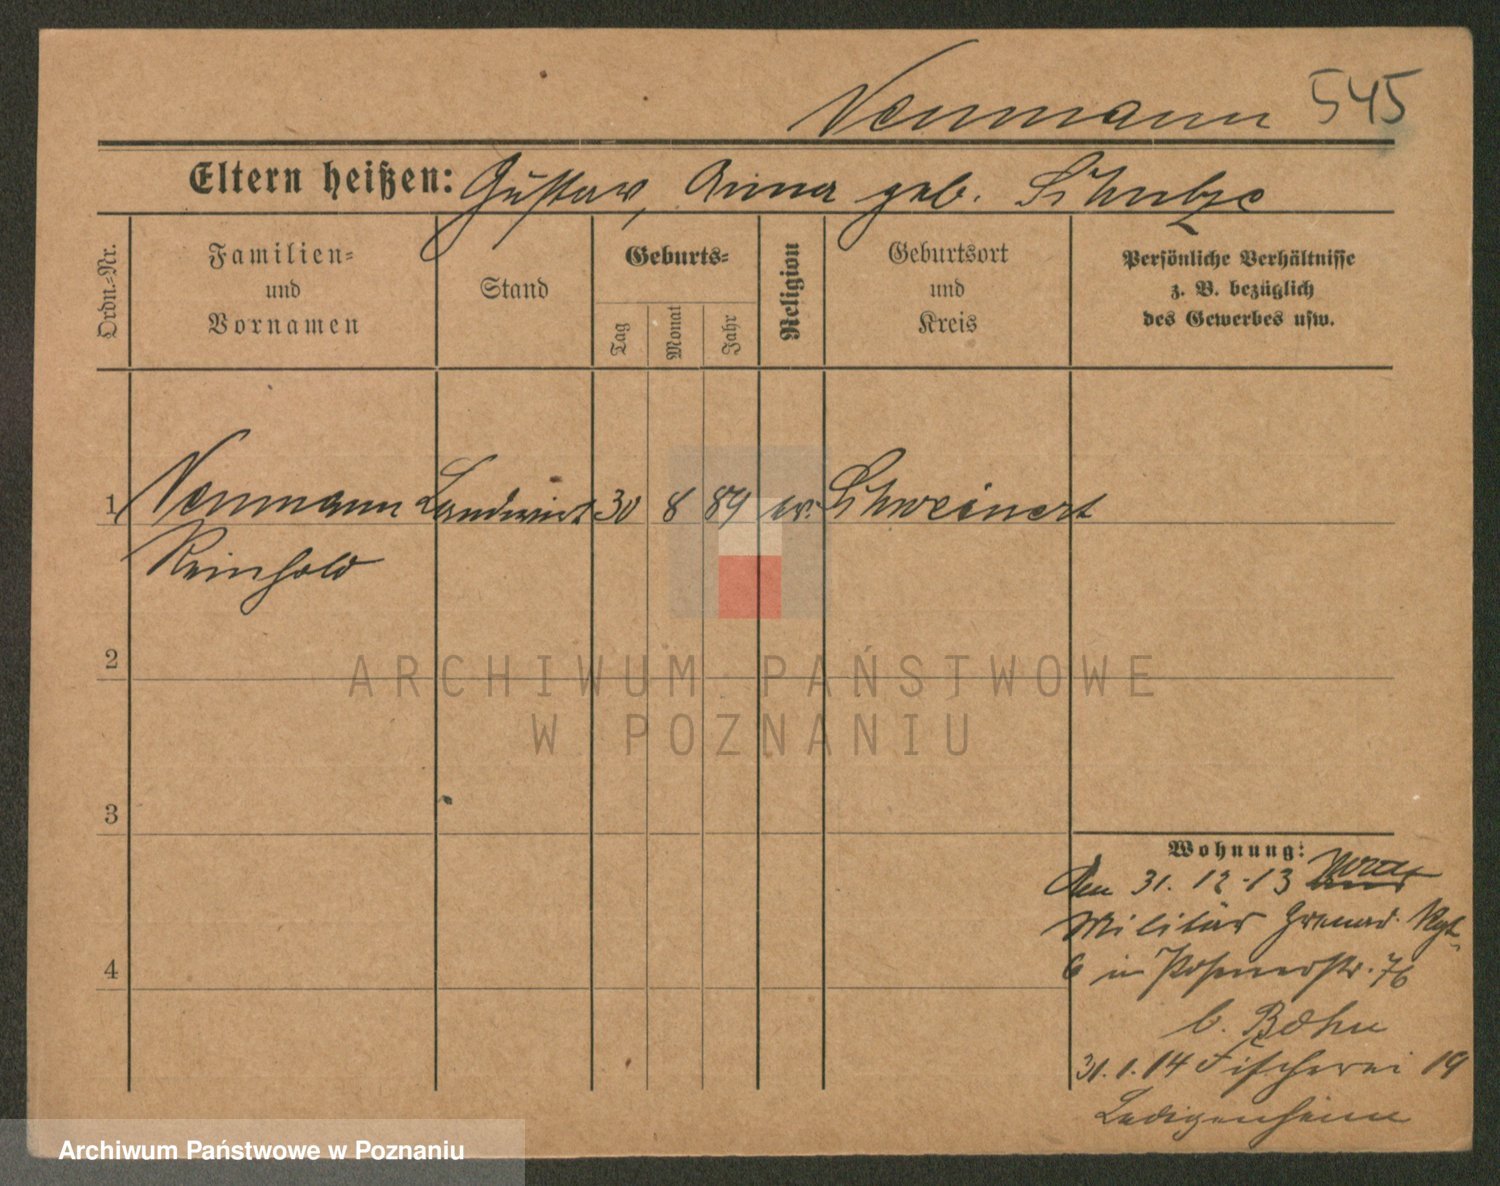 Neumann 545
Eltern heißen: Gustav, Anna geb. Schulze
Ordn.-Nr.
Familien-
und
Vornamen
Stand
Geburts-
Tag
Monat
Jahr
Religion
Geburtsort
und
Kreis
Persönliche Verhältnisse
z. B. bezüglich
des Gewerbes usw.
1 Neumann Landwirt 30 8 89 ev. Schweinert
Reinhold
2
3
4
Wohnung:
Den 31. 12. 13
Militär Grenad. Rgt.
6 in Posenerstr. 76
b. Böhn
31. 1. 14 Fischerei 19
Ledigenheim
ARCHIWUM PAŃSTWOWE
W POZNANIU
Archiwum Państwowe w Poznaniu